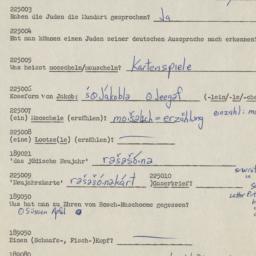 225003
Haben die Juden die Mundart gesprochen? Ja
225004
Hat man können einen Juden seiner deutschen Aussprache nach erkennen?
225005
Was heisst mooscheln/muuscheln? Kartenspiele
225006
Koseform von Jakob: Jákobla (-lein/-le/-che
225007
(ein) Mooschele (erzählen): = erzählung einzahl: mo
225008
(eine) Lootze(le) (erzählen):
189021
'das jüdische Neujahr' rašašóna
225009
'Neujahrskarte' rašašónakárt
225010
189050
Was hat man zu Ehren von Rosch-Haschoone gegessen?
Süssen Apfel
189050
Einen (Schaafs-, Fisch-)Kopf?
189080